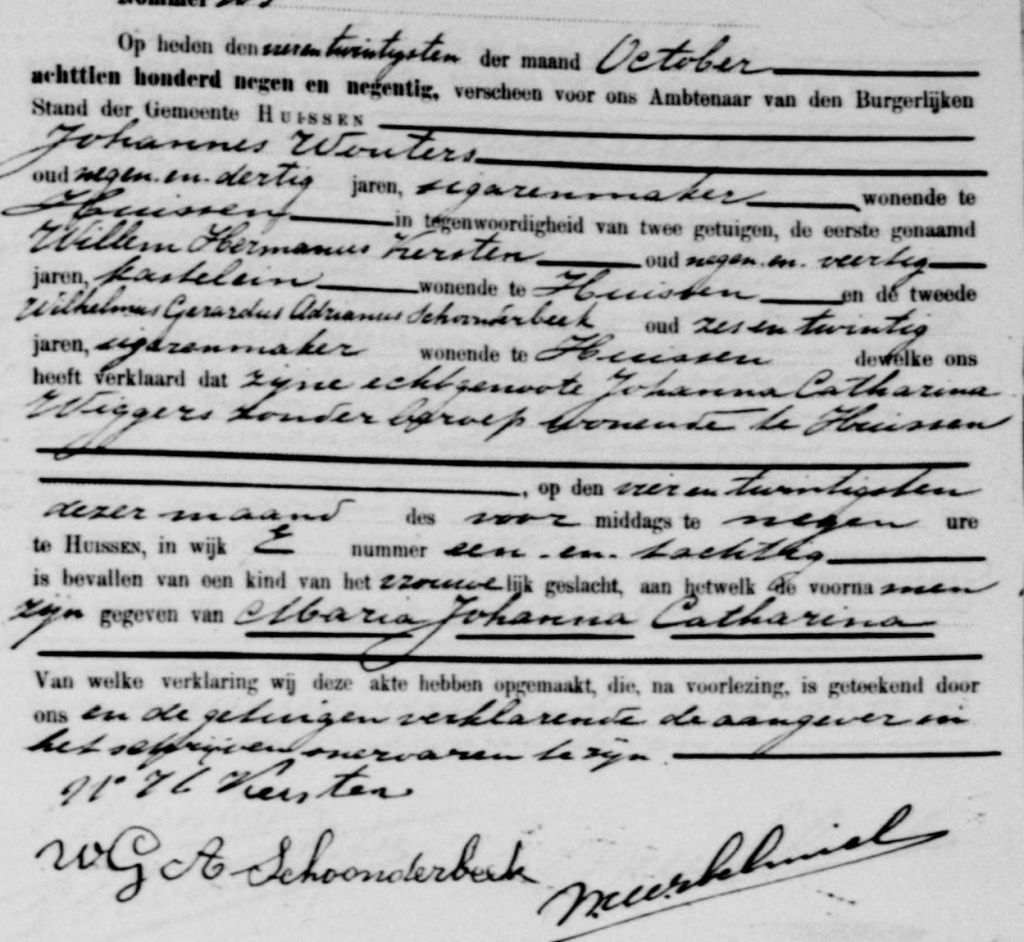 Op heden den vier en twintigsten der maand October
achttien honderd negen en negentig, verscheen voor ons Ambtenaar van den Burgerlijken
Stand der Gemeente HUISSEN
Johannes Wouters
oud negen en dertig jaren, sigarenmaker wonende te
Huissen in tegenwoordigheid van twee getuigen, de eerste genaamd
Willem Hermanus Kersten oud negen en veertig
jaren, kastelein wonende te Huissen en de tweede
Wilhelmus Gerardus Adrianus Schoonderbeek oud zes en twintig
jaren, sigarenmaker wonende te Huissen dewelke ons
heeft verklaard dat zijne echtgenoote Johanna Catharina
Wiggers zonder beroep wonende te Huissen
, op den vier en twintigsten
dezer maand des voor middags te negen ure
te HUISSEN, in wijk E nummer een en tachtig
is bevallen van een kind van het vrouwelijk geslacht, aan hetwelk de voornamen
zijn gegeven van Maria Johanna Catharina
Van welke verklaring wij deze akte hebben opgemaakt, die, na voorlezing, is geteekend door
ons en de getuigen verklarende de aangever in
het schrijven onervaren te zijn.
W H Kersten
W G A Schoonderbeek